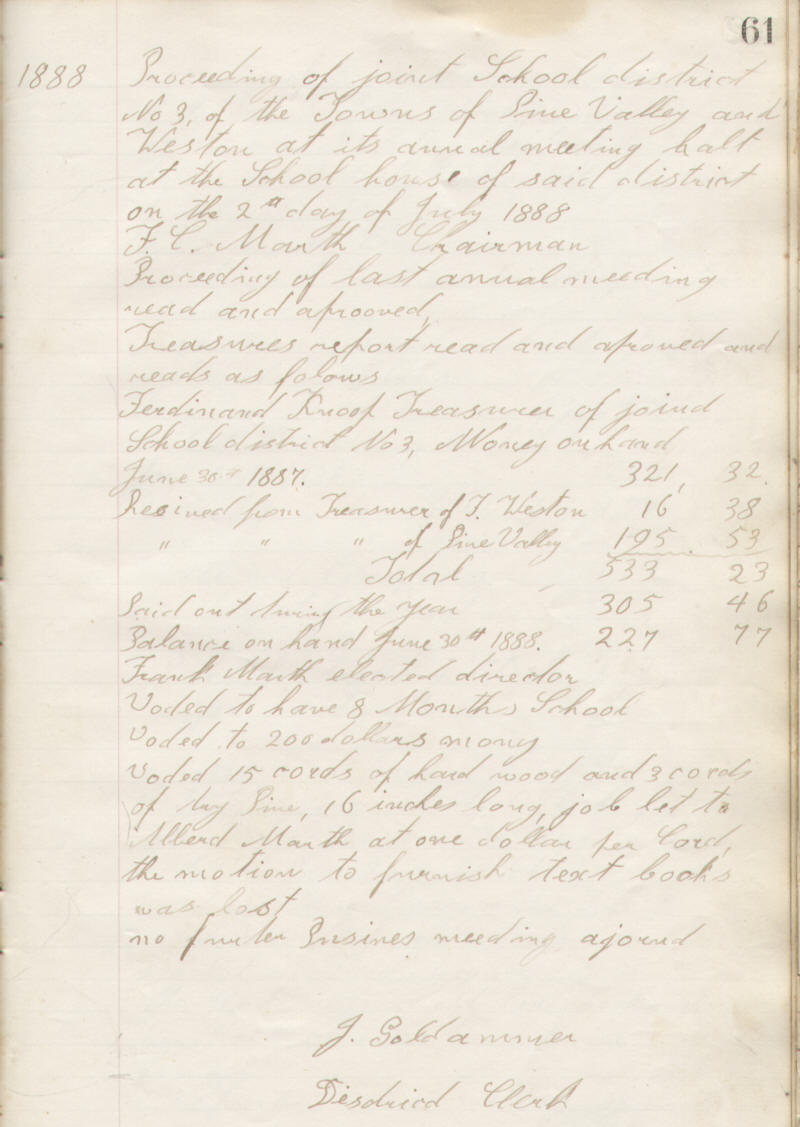 61
1888 Proceeding of joint School district
No 3, of the Towns of Pine Valley and
Weston at its anual meeting halt
at the School house of said district
on the 2 day of July 1888
F. C. Marth Chairman
Proceeding of last anual meeding
read and aprooved,
Treasures report read and aproved and
reads as folows
Ferdinand Knoof Treasurer of joind
School district No 3, Money on hand
June 30th 1887. 321, 32.
Recived from Treasurer of T. Weston 16 38
" " " of Pine Valley 195 53
Total 533 23
Paid out during the year 305 46
Balance on hand June 30th 1888. 227 77
Frank Marth elected director
Voded to have 8 Months School
Voded to 200 dollars mony
Voded 15 cords of hard wood and 3 cords
of dry Pine, 16 inches long, job let to
Alberd Marth at one dollar per Cord,
the motion to furnish text books
was lost
no furter Busines meeding ajornd
J. Goldammer
Disdricd Clerk